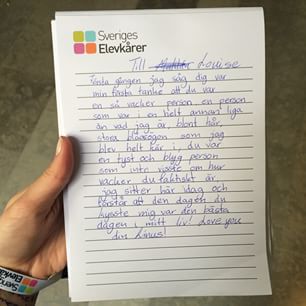 Sveriges
Elevkårer
Till Louise
Första gången jag såg dig var
min första tanke att du var
en så vacker person, en person
som var i en helt annan liga
än vad jag är, blont hår,
stora blåa ögon som jag
blev helt kär i, du var
en tyst och blyg person
som inte visste om hur
vacker du faktiskt är.
jag sitter här idag och
förstår att den dagen du
kysste mig var den bästa
dagen i mitt liv! Love you
din Linus!
Sveriges
Elevkårer